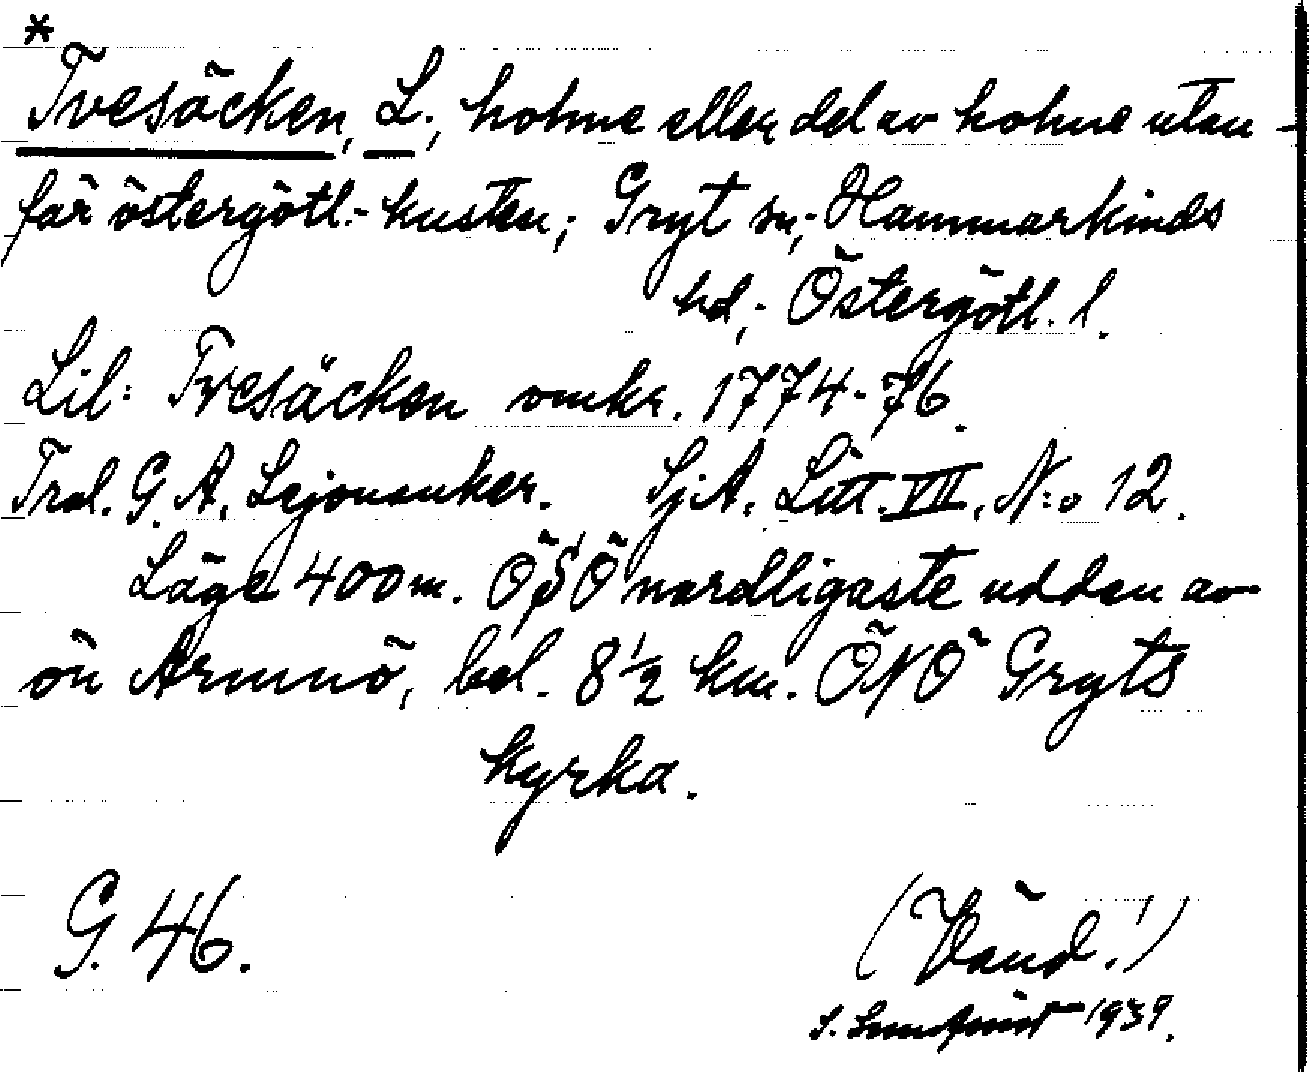 *
Tvesäcken, L., holme eller del av holme utan-
för östergötl.- kusten; Gryt sn; Hammarkinds
hd; Östergötl. l.
Lil: Tvesäcken omkr. 1774-76.
Trol. G. A. Lejonanker. Sj.A. Litt. VII. N:o 12.
Läge 400 m. ÖSÖ nordligaste udden av
ön Armnö, bel. 8 1/2 km. ÖNÖ Gryts
kyrka.
G. 46.
(Vänd!)
1939.